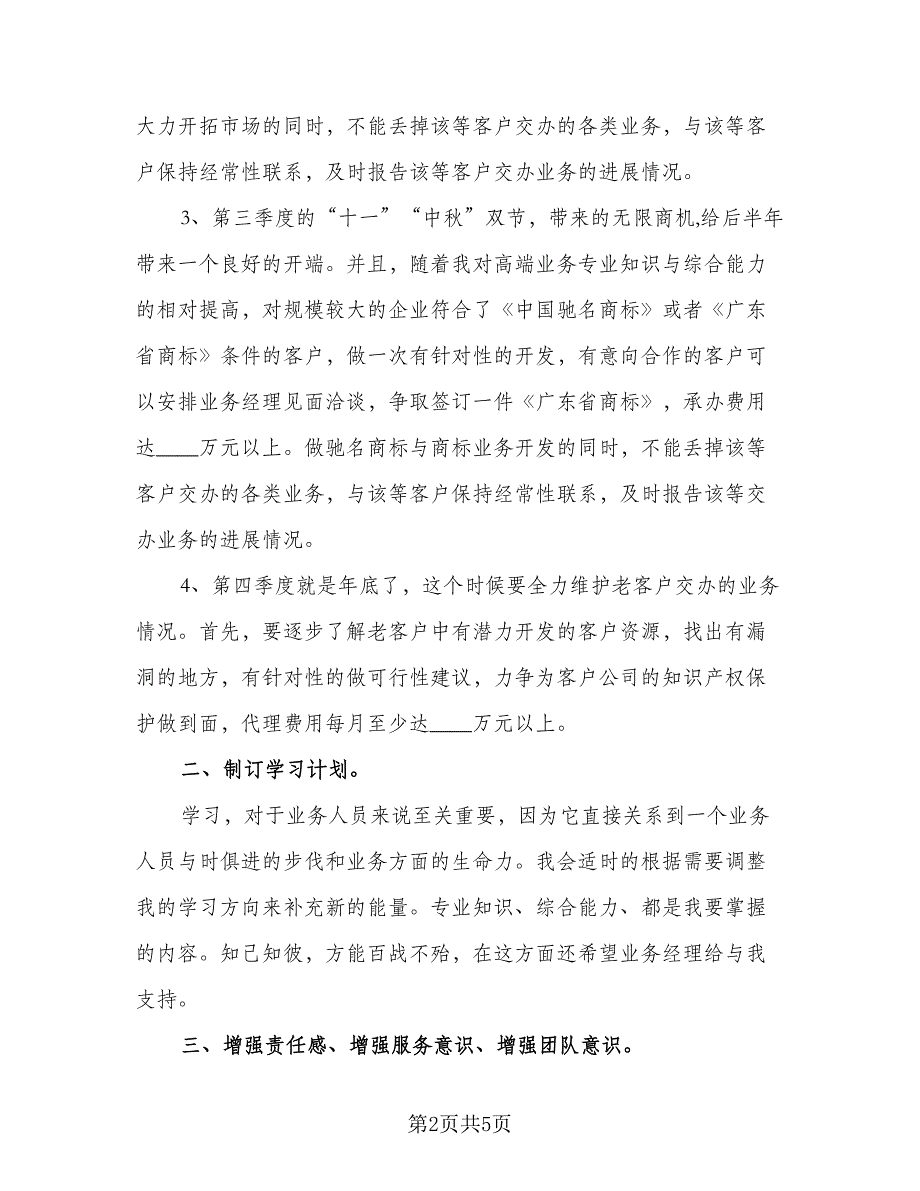 大力开拓市场的同时，不能丢掉该等客户交办的各类业务，与该等客
户保持经常性联系，及时报告该等客户交办业务的进展情况。
3、第三季度的“十一”“中秋”双节，带来的无限商机,给后半年
带来一个良好的开端。并且，随着我对高端业务专业知识与综合能力
的相对提高，对规模较大的企业符合了《中国驰名商标》或者《广东
省商标》条件的客户，做一次有针对性的开发，有意向合作的客户可
以安排业务经理见面洽谈，争取签订一件《广东省商标》，承办费用
达____万元以上。做驰名商标与商标业务开发的同时，不能丢掉该等
客户交办的各类业务，与该等客户保持经常性联系，及时报告该等交
办业务的进展情况。
4、第四季度就是年底了，这个时候要全力维护老客户交办的业务
情况。首先，要逐步了解老客户中有潜力开发的客户资源，找出有漏
洞的地方，有针对性的做可行性建议，力争为客户公司的知识产权保
护做到面，代理费用每月至少达____万元以上。
二、制订学习计划。
学习，对于业务人员来说至关重要，因为它直接关系到一个业务
人员与时俱进的步伐和业务方面的生命力。我会适时的根据需要调整
我的学习方向来补充新的能量。专业知识、综合能力、都是我要掌握
的内容。知己知彼，方能百战不殆，在这方面还希望业务经理给与我
支持。
三、增强责任感、增强服务意识、增强团队意识。
第2页共5页